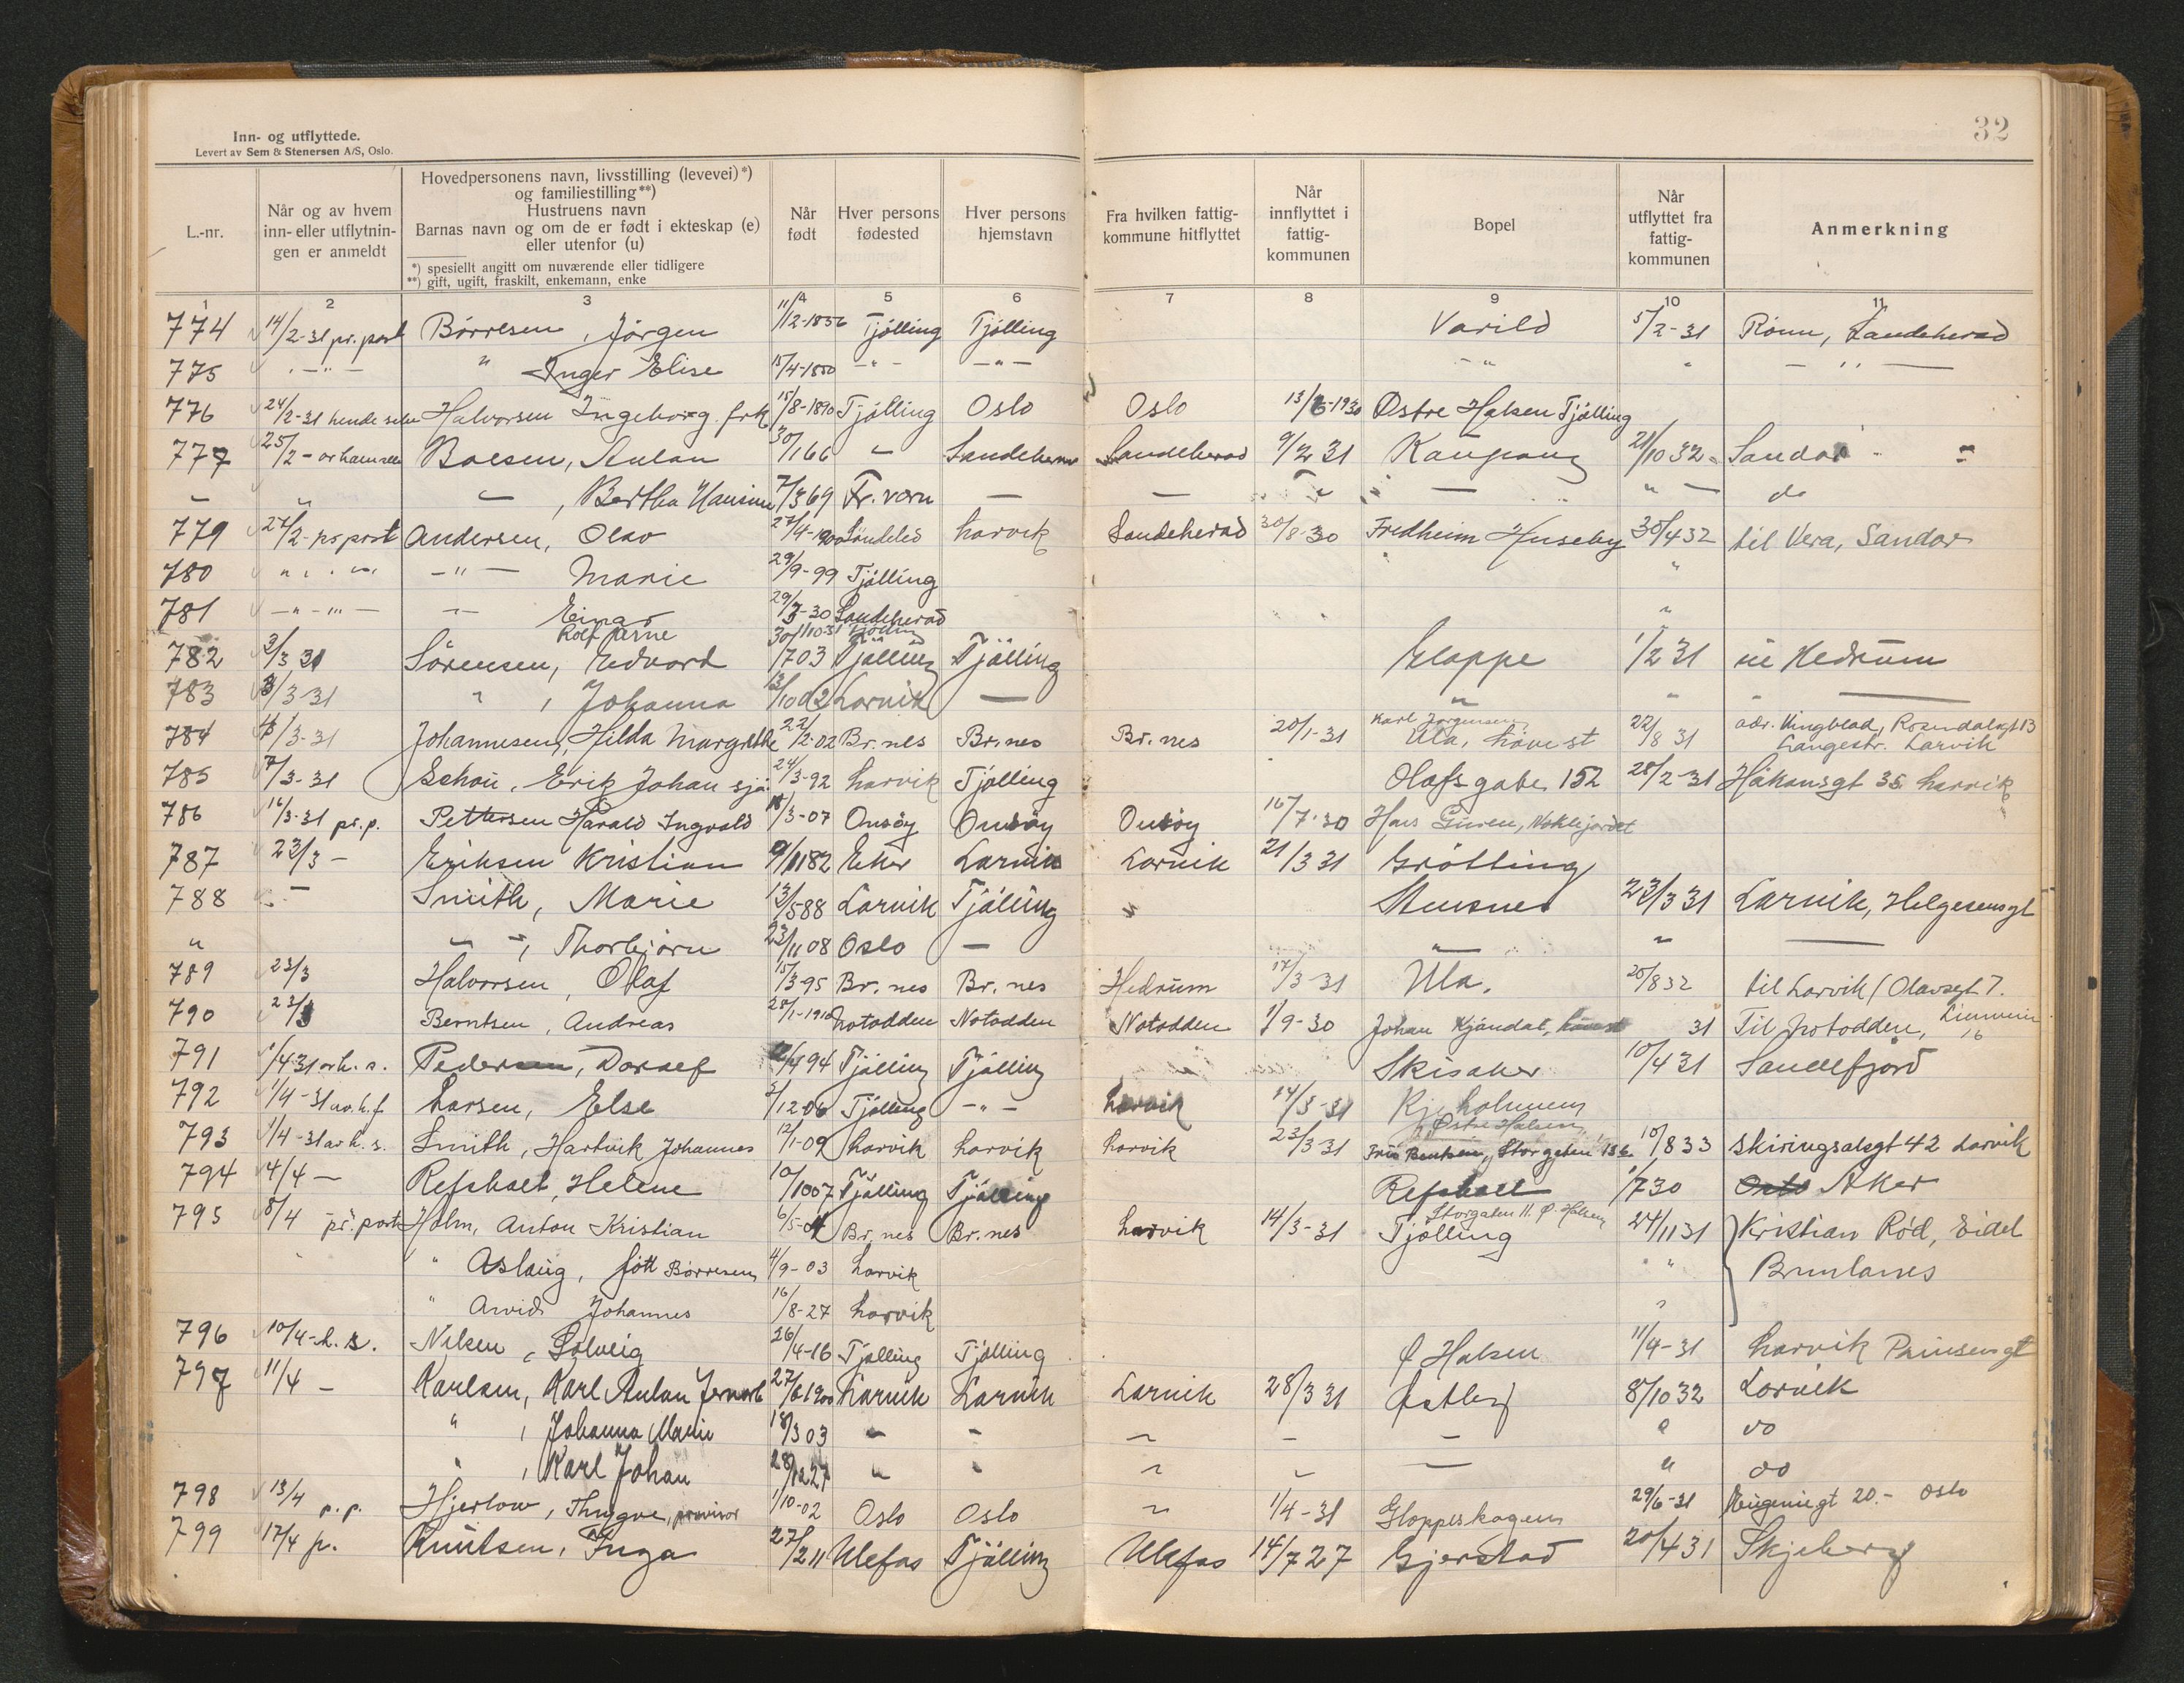 32
Inn- og utflyttede.
Levert av Sem & Stenersen A/S, Oslo.
L.-nr.
Når og av hvem inn- eller utflytnin-gen er anmeldt
Hovedpersonens navn, livsstilling (levevei) *) og familiestilling **)
Hustruens navn
Barnas navn og om de er født i ekteskap (e) eller utenfor (u)
*) spesiellt angitt om nuværende eller tidligere
**) gift, ugift, fraskilt, enkemann, enke
Når født
Hver persons fødested
Hver persons hjemstavn
Fra hvilken fattig-kommune hitflyttet
Når innflyttet i fattig-kommunen
Bopel
Når utflyttet fra fattig-kommunen
Anmerkning
1 2 3 4 5 6 7 8 9 10 11
774 14/2-31 pr. post Börresen, Jörgen 11/2-1856 Tjölling Tjölling Varild 5/2-31 Rönn, Sandeherad
775 - " - " Inger Elise 15/4-1850 - " - - " - - " - " - " -
776 24/2-31 hende selv Halvorsen Ingeborg. frk 15/8-1890 Tjölling Oslo Oslo 13/6-1930 Østre Halsen Tjölling
777 25/2 - av ham selv Boesen, Anton 30/1 66 - Sandeherad Sandeherad 9/2 31 Kaupang 21/10 32 Sandar
- " - , Bertha Hansine 7/3 69 Fr. værn - - " - " - do
779 27/2- pr post Andersen, Olav 27/4-1900 Söndeled Larvik Sandeherad 30/8-30 Fredheim Huseby 30/4 32 til Vera, Sandar
780 " - " - Marie 29/9-99 Tjölling "
781 - " - " - - " - Einar 29/3-30 Sandeherad "
Rolf Arne 30/10-31 Tjölling
782 3/3 31 Sörensen, Edvard 1/7 03 Tjölling Tjölling Gloppe 1/2 31 i Hedrum
783 3/3-31 " , Johanna 13/10 02 Larvik - " " "
784 4/3-31 Johannesen, Hilda Margrethe 22/2-02 Br. nes Br. nes Br. nes 20/1-31 Karl Jörgensen Ula, havest 22/8 31 adr. Vingblad, Rosendalsgt 13
Langestr. Larvik
785 7/3-31 Schou, Erik Johan sjö. 24/3-92 Larvik Tjölling Olafs gate 152 28/2-31 Håkonsgt 35 Larvik
786 16/3-31 pr. p. Pettersen Harald Ingvald 18/3-07 Onsöy Onsöy Onsöy 16/7-30 Hans Guren,
787 23/3 - Eriksen Kristian 9/11 82 Eker Larvik Larvik 21/3 31 Grötting
788 - Smith, Marie 13/5 88 Larvik Tjölling Stusnes 23/3 31 Larvik, Helgesensgt
" " - , Thorbjörn 23/11 08 Oslo - " "
789 23/3 Halvorsen, Olaf 15/3 95 Br. nes Br. nes Hedrum 17/3-31 Ula. 20/8 32 til Larvik / Olavsgt 7.
790 23/3 Berntsen, Andreas 28/1-1910 Notodden Notodden Notodden 1/9-30 Johan Kjöndal, 31 Til Notodden,
16
791 1/4 31 av h. s. Pedersen, Dorsef 4 94 Tjölling Tjölling Skisaker 10/4 31 Sandefjord
792 1/4-31 av. h. f Larsen, Else 3/12 06 Tjölling - " - Larvik 24/3-31 Kjeholmen
Østre Halsen
793 1/4-31 av h. s. Smith, Hartvik Johannes 12/1-09 Larvik Larvik Larvik 23/3 31 Fru Bentsen, Storgaten 136 10/8 33 Skiringsalsgt 42 Larvik
794 4/4 - Refsholt, Helene 10/10 07 Tjölling Tjölling Refsholt 1/7 30 Oslo Aker
795 8/4 - pr. post Holm, Anton Kristian 6/5-4 Br. nes Br. nes Larvik 14/3-31 Storgaten 11. Ø. Halsen Tjölling 24/11 31 Kristian Röd, Eidet
" Aslaug, född Börresen 4/9-03 Larvik " Brunlanes
" Arvid Johannes 16/8-27 Larvik "
796 10/4-h. s. Nilsen, Solveig 26/4-16 Tjölling Tjölling Ø Halsen 11/4-31 Larvik Prinsensgt
797 11/4 - Karlsen, Karl Anton 27/6 1900 Larvik Larvik Larvik 28/3 31 Østby 8/10 32 Larvik
" , Johanna Marie 18/3 03 - - - - " do
" , Karl Johan 28/12 27 - " do
798 13/4 p. p. Hjertow, Thrygve, provisor 1/10-02 Oslo Oslo " 1/4-31 Gloppeskogen 29/6-31 Eugeniegt 20.- Oslo
799 17/4 p. Knutsen, Inga 27/2 11 Ulefos Tjölling Ulefos 14/7 27 Gjerstad 20/4 31 Skjeberg